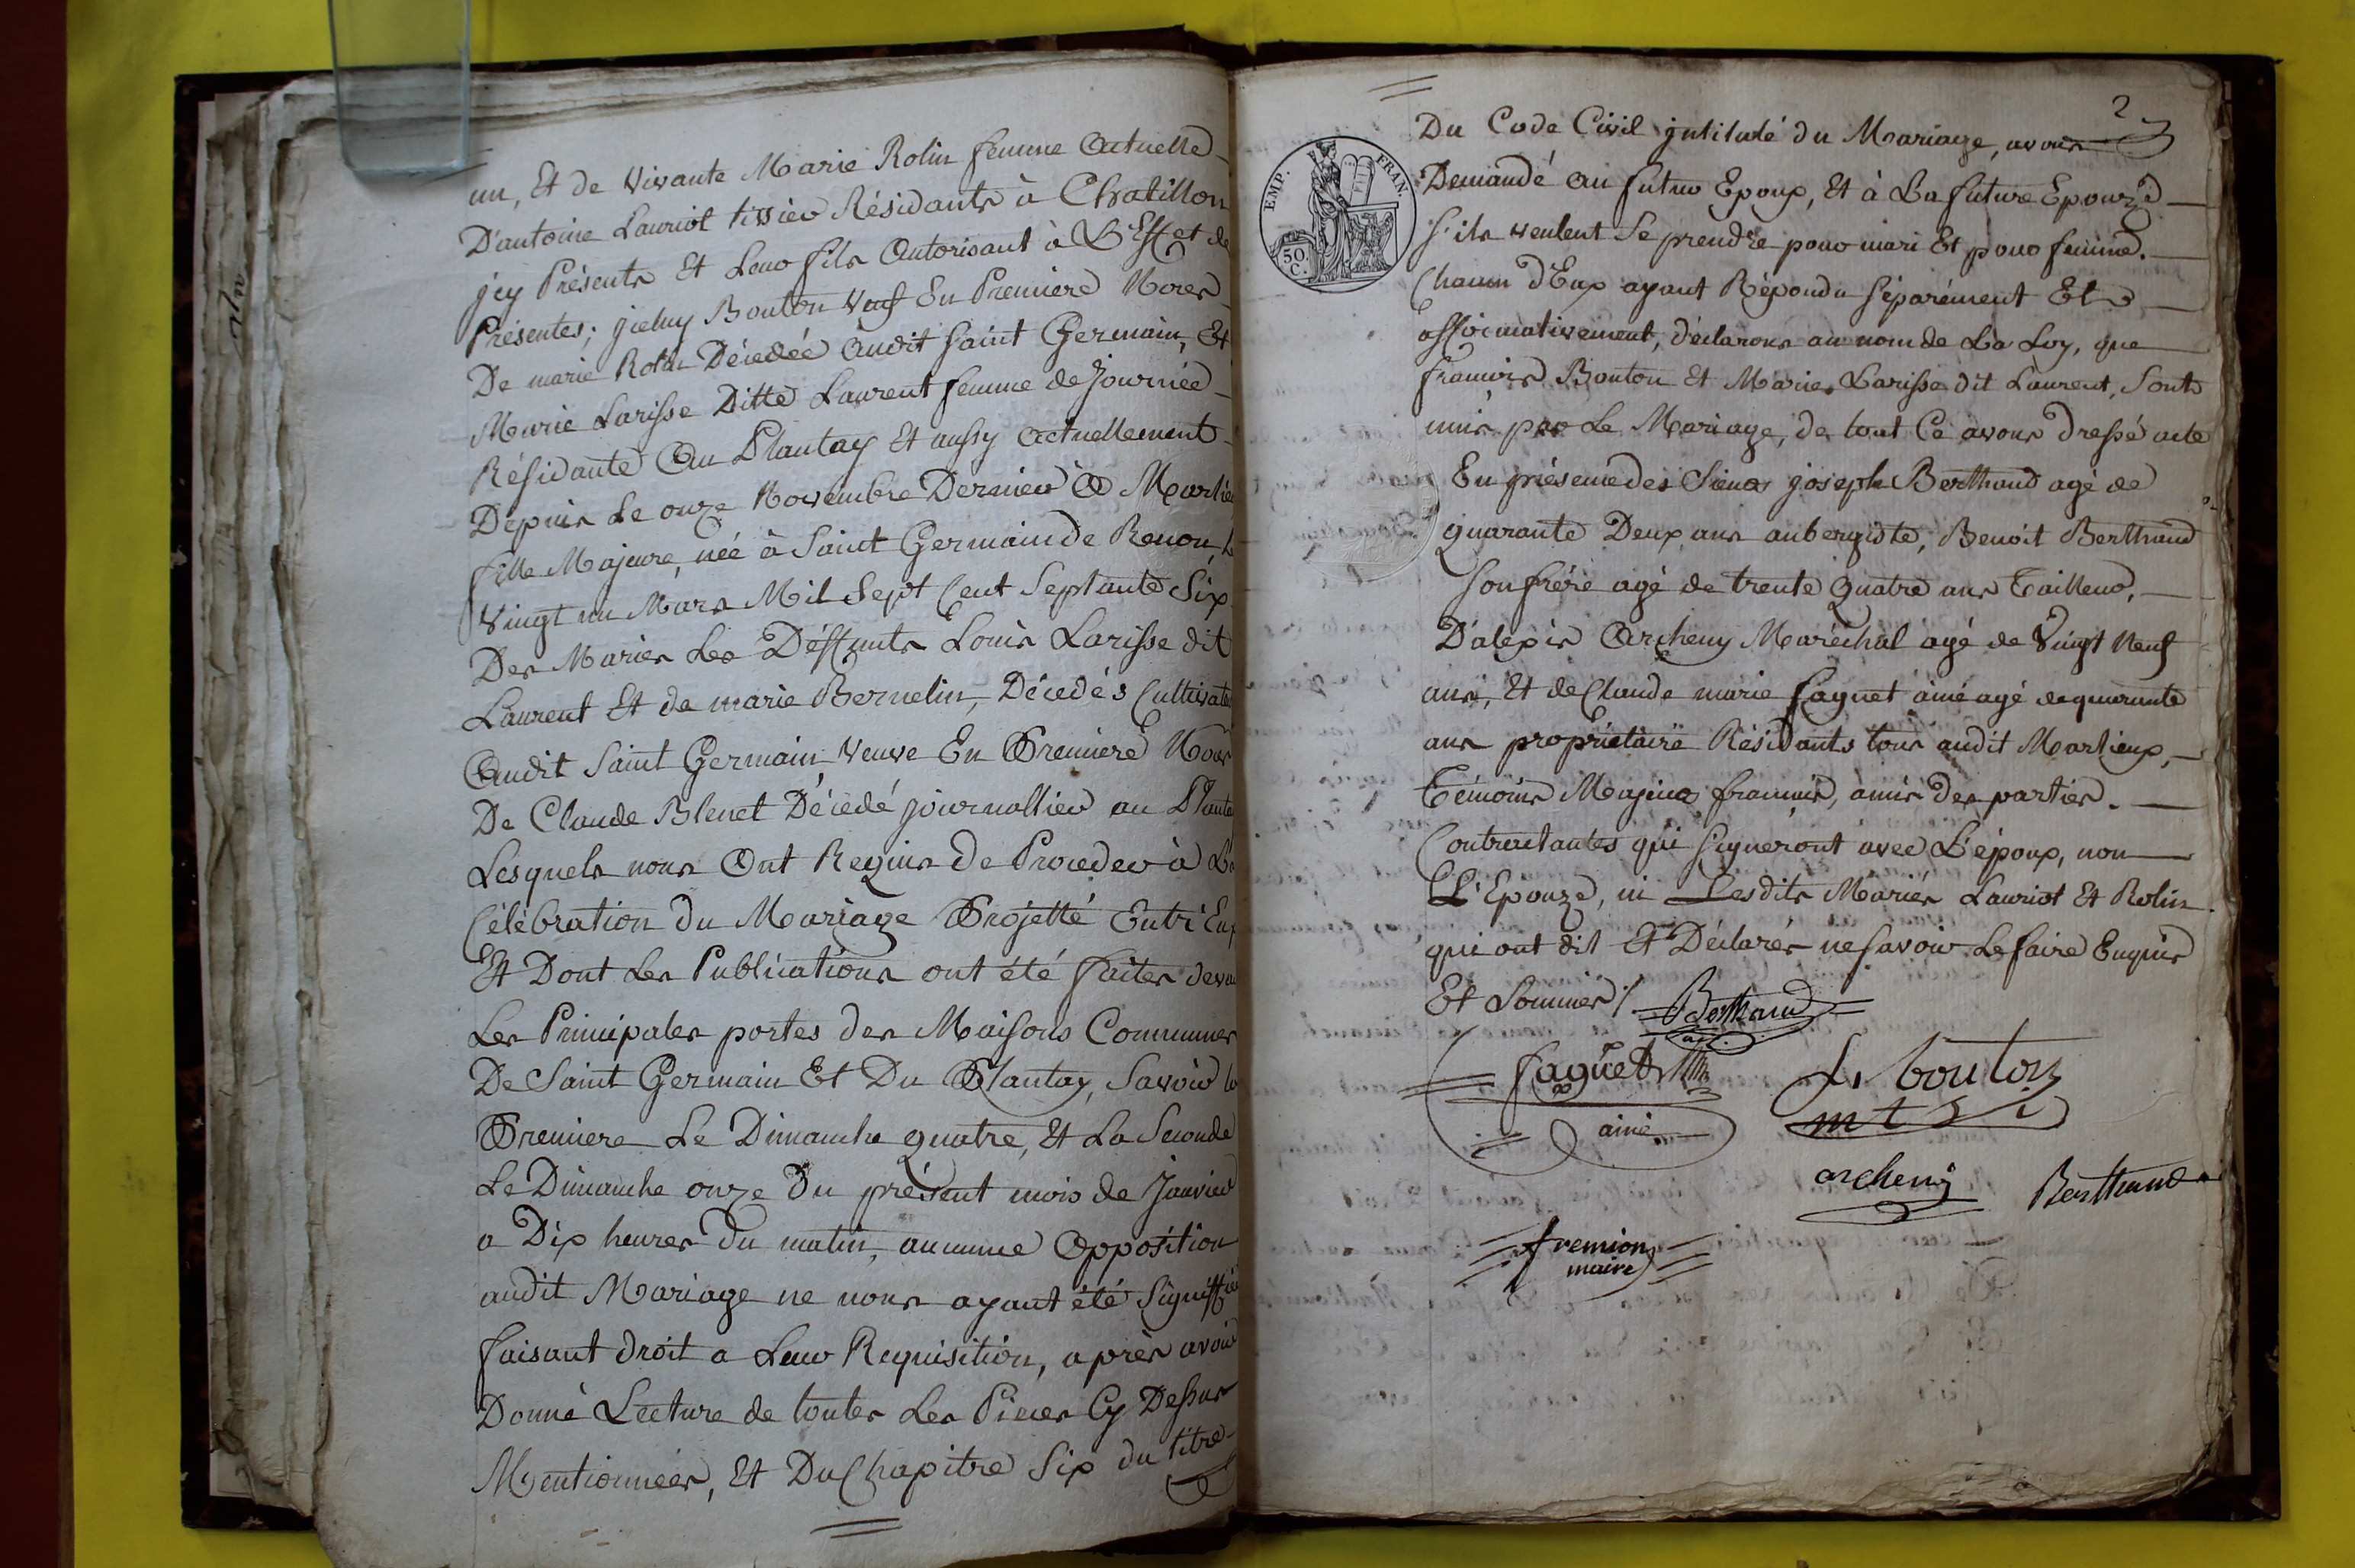 un, Et de Vivante Marie Rolin femme Actuelle
D'antoine Lauriot tissier Résidants à Chatillon
jcy Présents Et Leur fils Autorisant à L'Effet de
Présentes; jceluy Bouton Veuf En Premiere Noces
De marie Rolin Décedée Audit Saint Germain, Et
Marie Larisse Ditte Laurent femme de Journée
Résidante Au Plantay Et aussy Actuellement
Depuis Le onze Novembre Dernier à Marlieu
fille Majeure, née à Saint Germain de Renon, le
Vingt un Mars Mil Sept Cent Septante Six
Des Mariés Les Deffunts Louis Larisse dit
Laurent Et de marie Bernelin, Décedés Cultivate
Audit Saint Germain Veuve En Premiere Noces
De Claude Blenet Décedé journallier au Plante
Lesquels nous Ont Requis de Proceder à La
Célébration du Mariage Projetté Entr'Eux
Et Dont Les Publications ont été faites devan
Les Principales portes des Maisons Communes
De Saint Germain Et Du Plantay, Savoir la
Premiere Le Dimanche quatre, Et La Seconde
Le Dimanche onze Du présent mois de Janvier
a Dix heures Du matin, aucunne Opposition
audit Mariage ne nous ayant été Signiffiée
faisant droit a Leur Requisition, après avoir
Donné Lecture de toutes Les Pieces Cy Dessus
Mentionnées, Et Du Chapitre Six du titre
2
EMP. FRAN.
50. C.
Du Code Civil jntitulé du Mariage, avons
Demandé au futur Epoux, Et à La future Epouze
S'ils veulent Se prendre pour mari Et pour femme.
Chacun d'Eux ayant Répondu Séparément Et
affirmativement, déclarons au nom de La Loy, que
francois Bouton Et Marie Larisse dit Laurent, Sont
unis par Le Mariage, de tout Ce avons dressé acte
En présence des Sieurs joseph Berthaud agé de
quarante Deux ans aubergiste, Benoit Berthaud
Son frére agé de trente Quatre ans Tailleur,
D'alexis Archeny Maréchal agé de Vingt Neuf
ans, Et de Claude marie faguet ainé agé de quarante
ans propriétaire Résidants tous audit Marlieux,
Témoins Majeurs francais, amis des parties
Contractantes qui Signéront avec L'époux, non
L'Epouze, ni Lesdits Mariés Lauriot Et Rolin
qui ont dit Et Déclarés ne Savoir Le faire Enquis
Et Sommés ./. Berthaud
faguet
ainé
bouton
archeny
Berthaud
fremion
maire